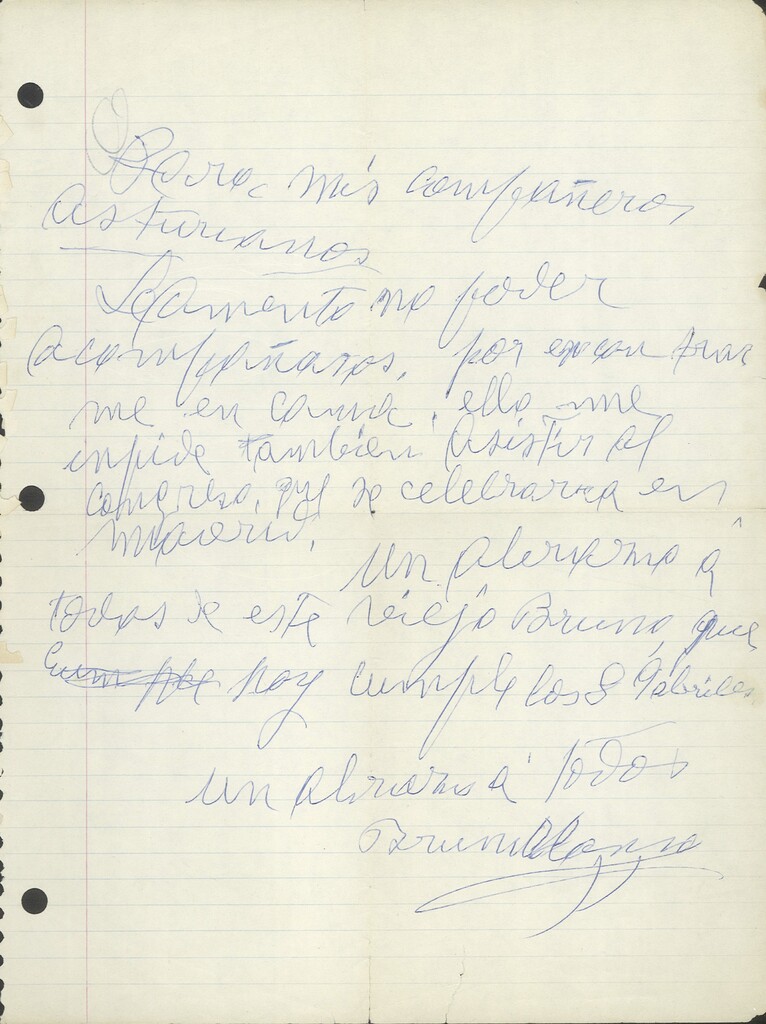 Para mis compañeros
asturianos
Lamento no poder
acompañaros, por encontrar
me en cama, ello me
inpide tambien asistir al
congreso, que se celebrara en
Madrid.
Un abrazo a
todos de este viejo Bruno, que
cumple hoy cumple los 89 abriles
un abrazo a todos
Bruno Alonso